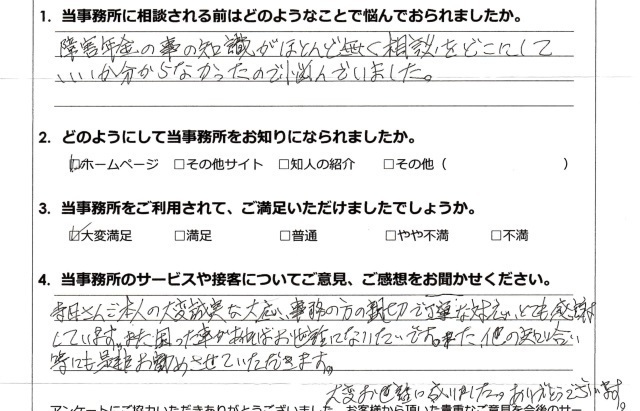 1. 当事務所に相談される前はどのようなことで悩んでおられましたか。
障害年金の事の知識がほとんど無く相談をどこにして
いいか分からなかったので悩んでいました。
2. どのようにして当事務所をお知りになられましたか。
☑ホームページ □その他サイト □知人の紹介 □その他（ ）
3. 当事務所をご利用されて、ご満足いただけましたでしょうか。
☑大変満足 □満足 □普通 □やや不満 □不満
4. 当事務所のサービスや接客についてご意見、ご感想をお聞かせください。
さんご本人の大変誠実な対応、事務の方の親切で丁寧な対応、とても感謝
しています。また困った事があればお世話になりたいです。また、他の知り合い
等にも是非お勧めさせていただきます。
大変お世話になりました。ありがとうございます。
アンケートにご協力いただきありがとうございました。お客様から頂いた貴重なご意見を今後のサー